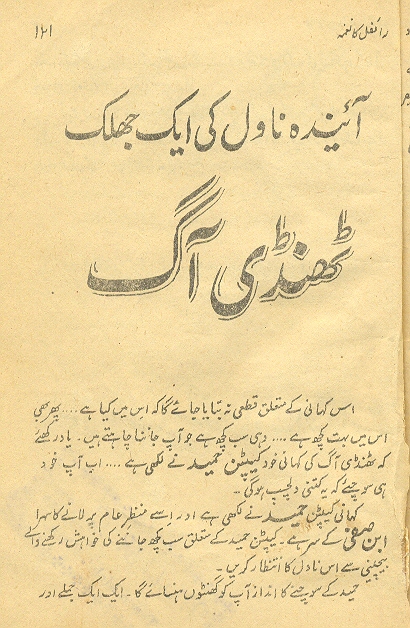 رائفل کا نغمہ
۱۲۱
آئیندہ ناول کی ایک جھلک
ٹھنڈی آگ
اس کہانی کے متعلق قطعی نہ بتایا جائے گا کہ اس میں کیا ہے .... پھر بھی
اس میں بہت کچھ ہے .... وہی سب کچھ ہے جو آپ جاننا چاہتے ہیں ۔ یاد رکھئے
کہ ٹھنڈی آگ کی کہانی خود کیپٹن حمید نے لکھی ہے .... اب آپ خود
ہی سوچئے کہ یہ کتنی دلچسپ ہوگی ۔
کہانی کیپٹن حمید نے لکھی ہے اور اسے منظرِ عام پر لانے کا سہرا
ابن صفی کے سر ہے ۔ کیپٹن حمید کے متعلق سب کچھ جاننے کی خواہش رکھنے والے
بیچینی سے اس ناول کا انتظار کریں ۔
حمید کے سوچنے کا انداز آپ کو گھنٹوں ہنسائے گا ۔ ایک ایک جملے اور